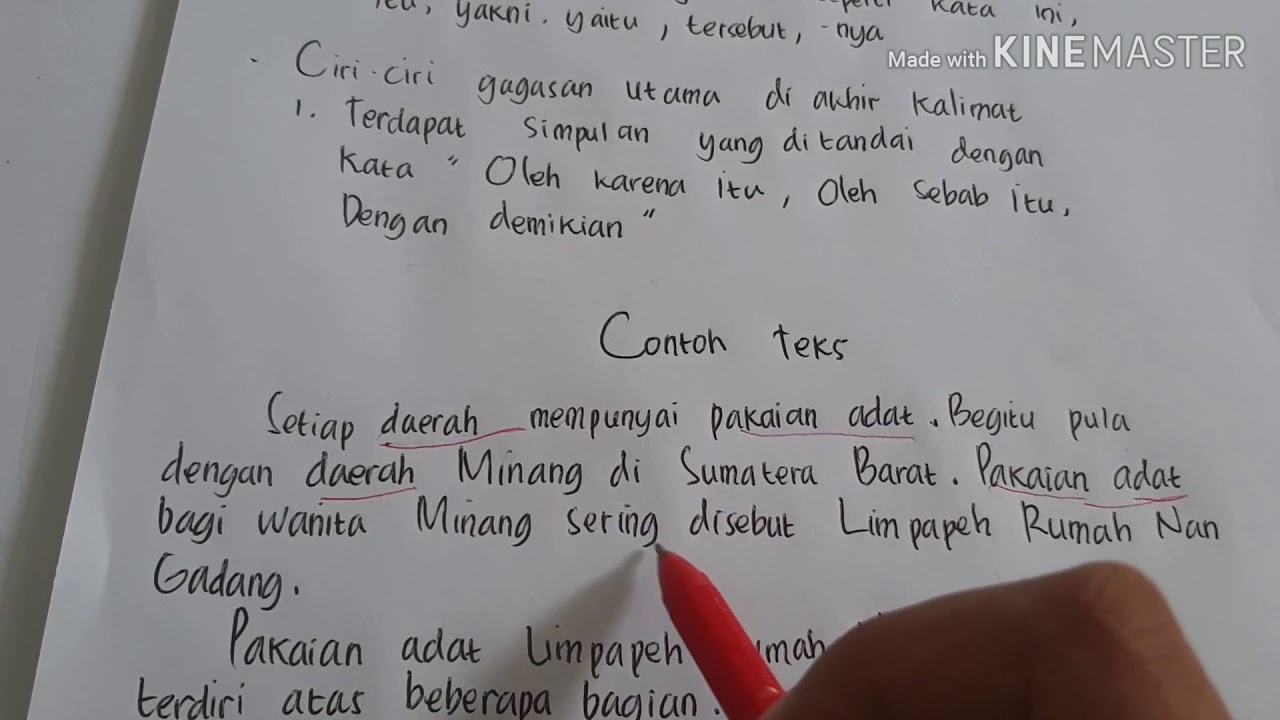 itu, yakni. yaitu, tersebut, -nya kata ini,
Made with KINEMASTER
- Ciri-ciri gagasan utama di akhir kalimat
1. Terdapat simpulan yang ditandai dengan
kata " Oleh karena itu, Oleh sebab itu,
Dengan demikian "
Contoh teks
Setiap daerah mempunyai pakaian adat. Begitu pula
dengan daerah Minang di Sumatera Barat. Pakaian adat
bagi wanita Minang sering disebut Limpapeh Rumah Nan
Gadang.
Pakaian adat Limpapeh
terdiri atas beberapa bagian.